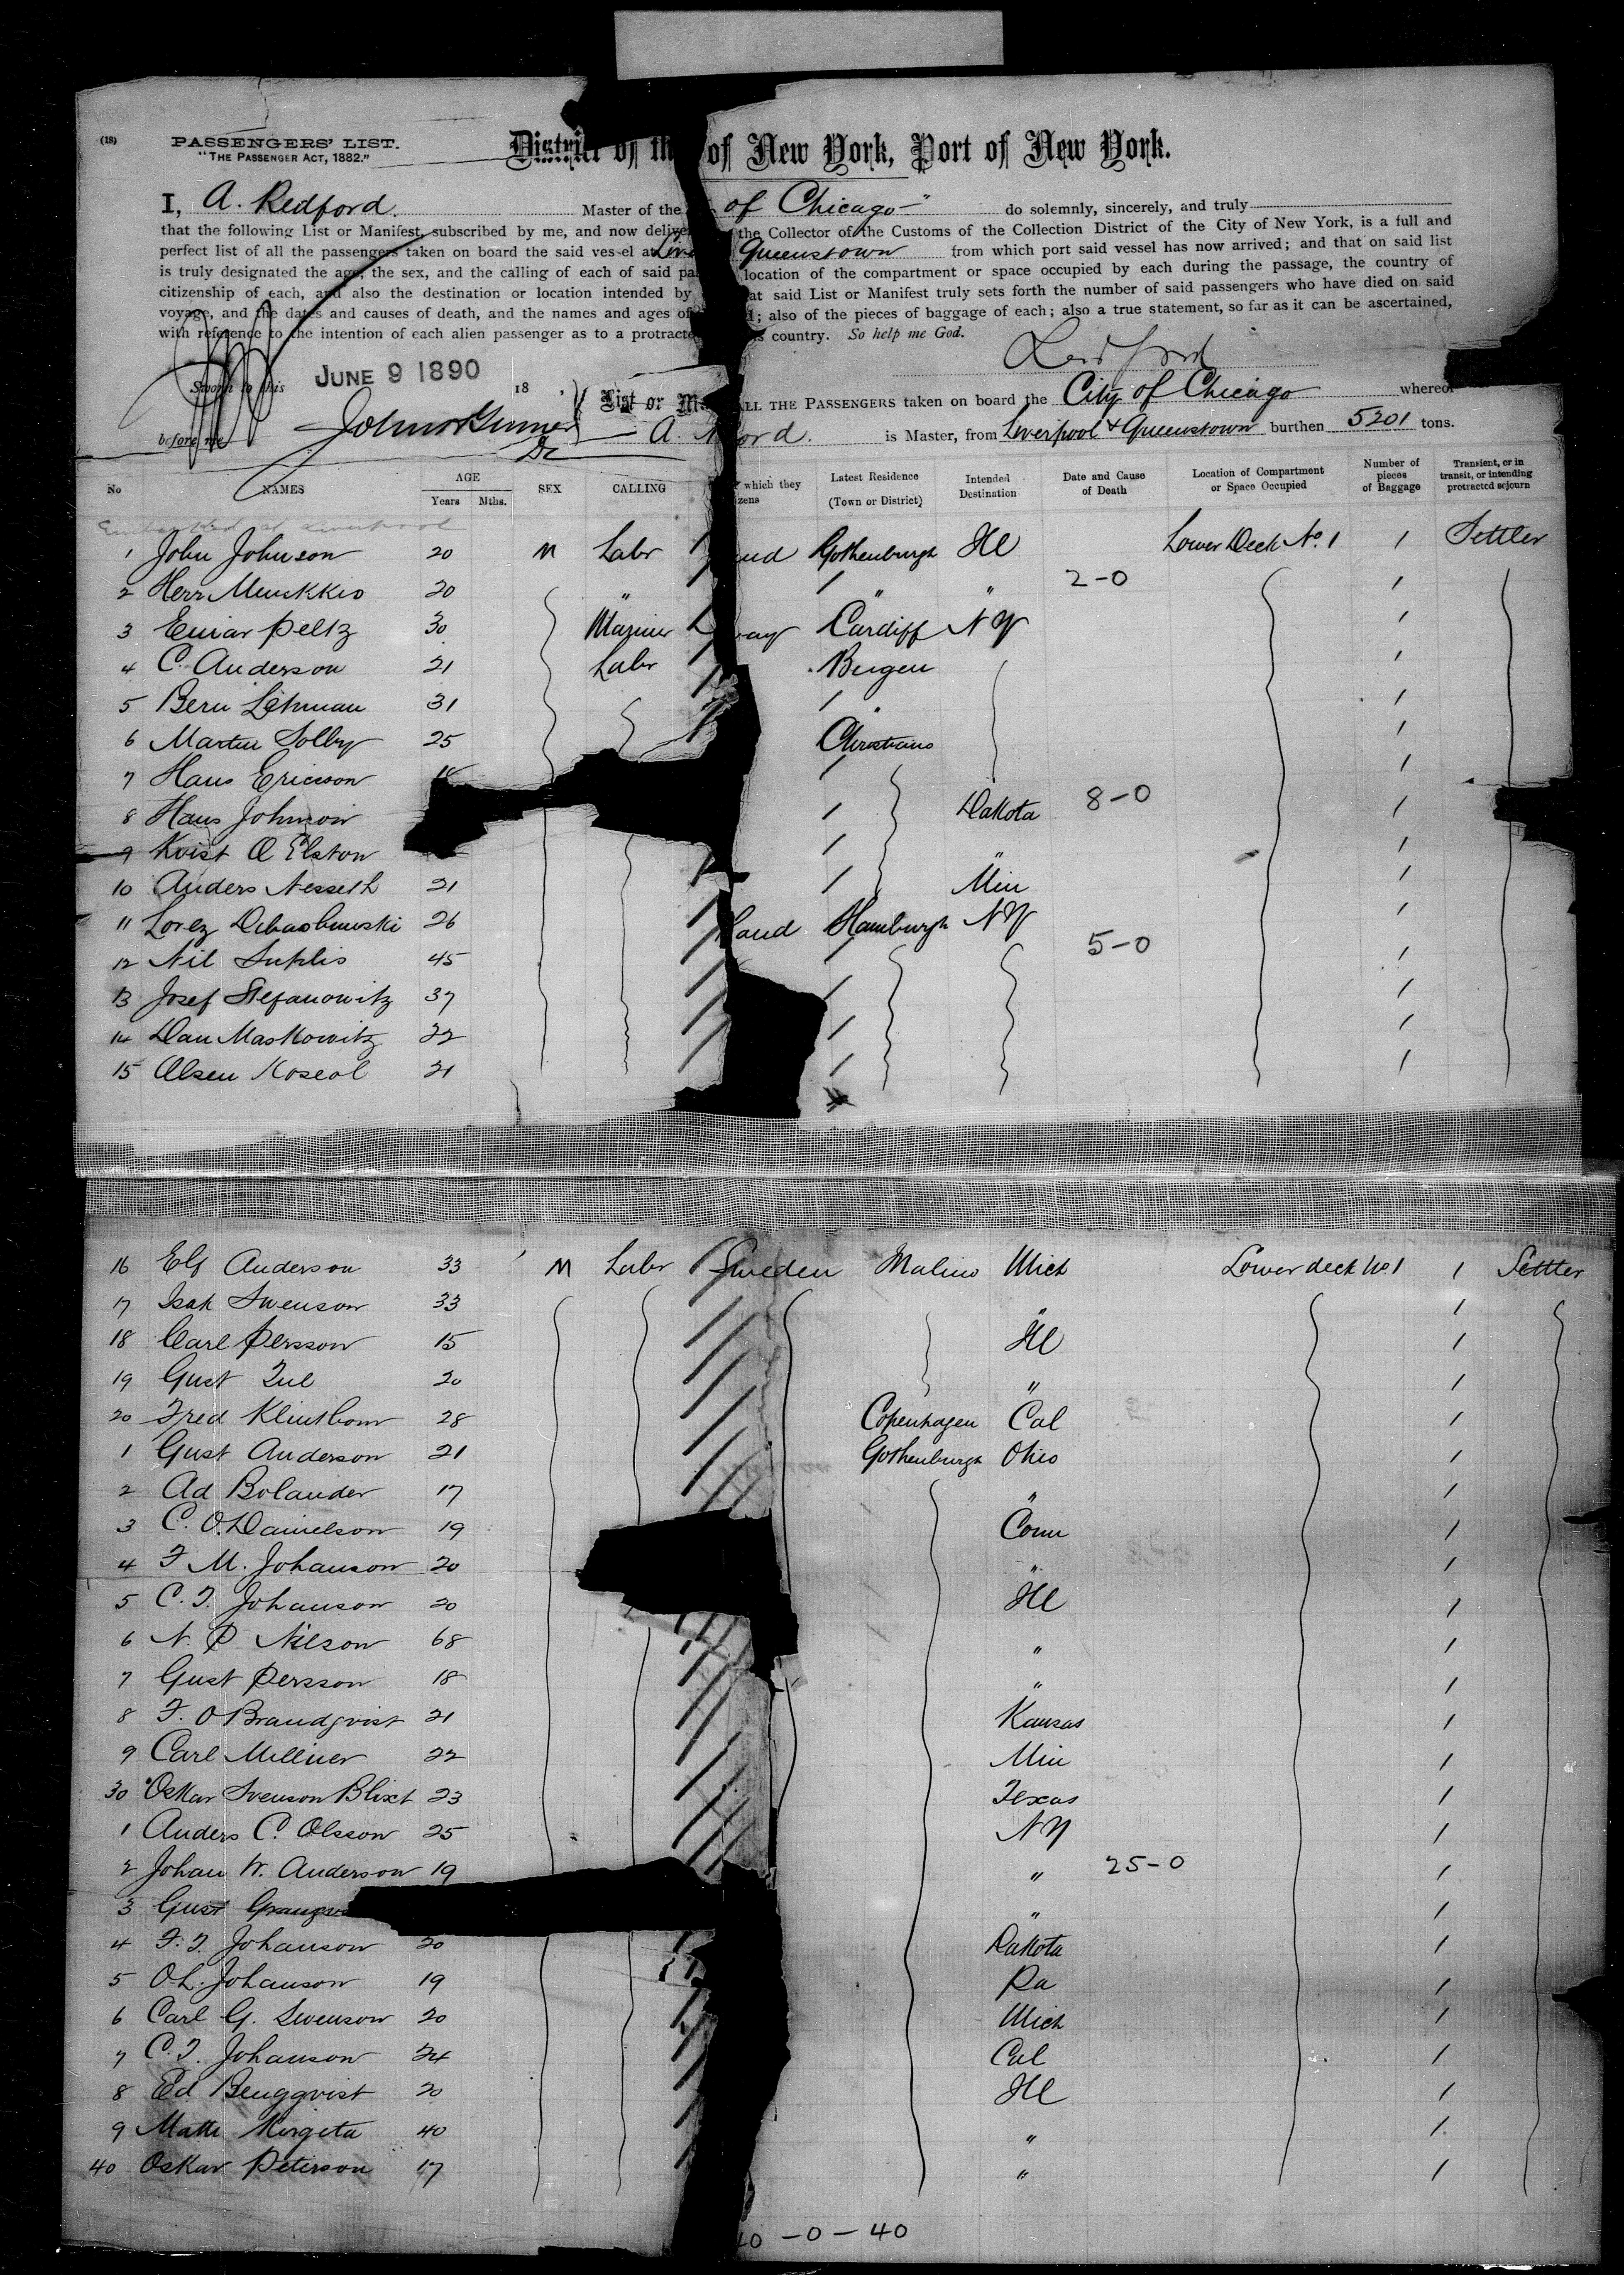 (18)
PASSENGERS' LIST.
"THE PASSENGER ACT, 1882."
District of th of New York, Port of New York.
I, A. Redford. Master of the of Chicago" do solemnly, sincerely, and truly
that the following List or Manifest, subscribed by me, and now delive the Collector of the Customs of the Collection District of the City of New York, is a full and
perfect list of all the passengers taken on board the said vessel at Queenstown from which port said vessel has now arrived; and that on said list
is truly designated the age, the sex, and the calling of each of said pa location of the compartment or space occupied by each during the passage, the country of
citizenship of each, and also the destination or location intended by at said List or Manifest truly sets forth the number of said passengers who have died on said
voyage, and the dates and causes of death, and the names and ages of ; also of the pieces of baggage of each; also a true statement, so far as it can be ascertained,
with reference to the intention of each alien passenger as to a protracte s country. So help me God.
Redford
Sworn to this JUNE 9 1890 18
List or M ALL THE PASSENGERS taken on board the City of Chicago whereof
before me A. ford. is Master, from Liverpool & Queenstown burthen 5201 tons.
No NAMES AGE Years Mths. SEX CALLING which they zens Latest Residence (Town or District) Intended Destination Date and Cause of Death Location of Compartment or Space Occupied Number of pieces of Baggage Transient, or in transit, or intending protracted sojourn
Embarked at Liverpool
1 John Johnson 20 M Labr Gothenburgh Ill Lower Deck No. 1 1 Settler
2 Herr Munkkio 20 " " " 2-0 1
3 Einar Peltz 30 Mariner way Cardiff NY 1
4 C. Anderson 21 Labr Bergen 1
5 Bern Lehman 31 " 1
6 Martin Solby 25 Christiana 1
7 Hans Ericson 1
8 Hans Johnson Dakota 8-0 1
9 Kvist O Elston " 1
10 Anders Nesseth 21 Min 1
11 Lorez 26 land Hamburgh NY 1
12 Nil 45 5-0 1
13 Josef Stefanowitz 37 1
14 Dan Maskowitz 22 1
15 Olsen Koseol 21 1
16 Elf Anderson 33 M Labr Sweden Malmo Mich Lower deck No 1 1 Settler
17 Isak Swenson 33 " 1
18 Carl Persson 15 Ill 1
19 Gust 20 " 1
20 Fred Klintbom 28 Copenhagen Cal 1
1 Gust Anderson 21 Gothenburgh Ohio 1
2 Ad Bolander 17 " 1
3 C. O. Danielson 19 Conn 1
4 F M. Johanson 20 " 1
5 C. F. Johanson 20 Ill 1
6 N. P Nilson 68 " 1
7 Gust Persson 18 " 1
8 F. O Brandqvist 21 Kansas 1
9 Carl Milliner 22 Min 1
30 Oskar Svenson Blixt 23 Texas 1
1 Anders C. Olsson 25 NY 1
2 Johan W. Anderson 19 " 25-0 1
3 Gust " 1
4 F. F. Johanson 20 Dakota 1
5 O. L. Johanson 19 Pa 1
6 Carl G. Swenson 20 Mich 1
7 C. F. Johanson 24 Cal 1
8 Ed Bengqvist 20 Ill 1
9 Matti 40 " 1
40 Oskar Peterson 17 " 1
40 - 0 - 40